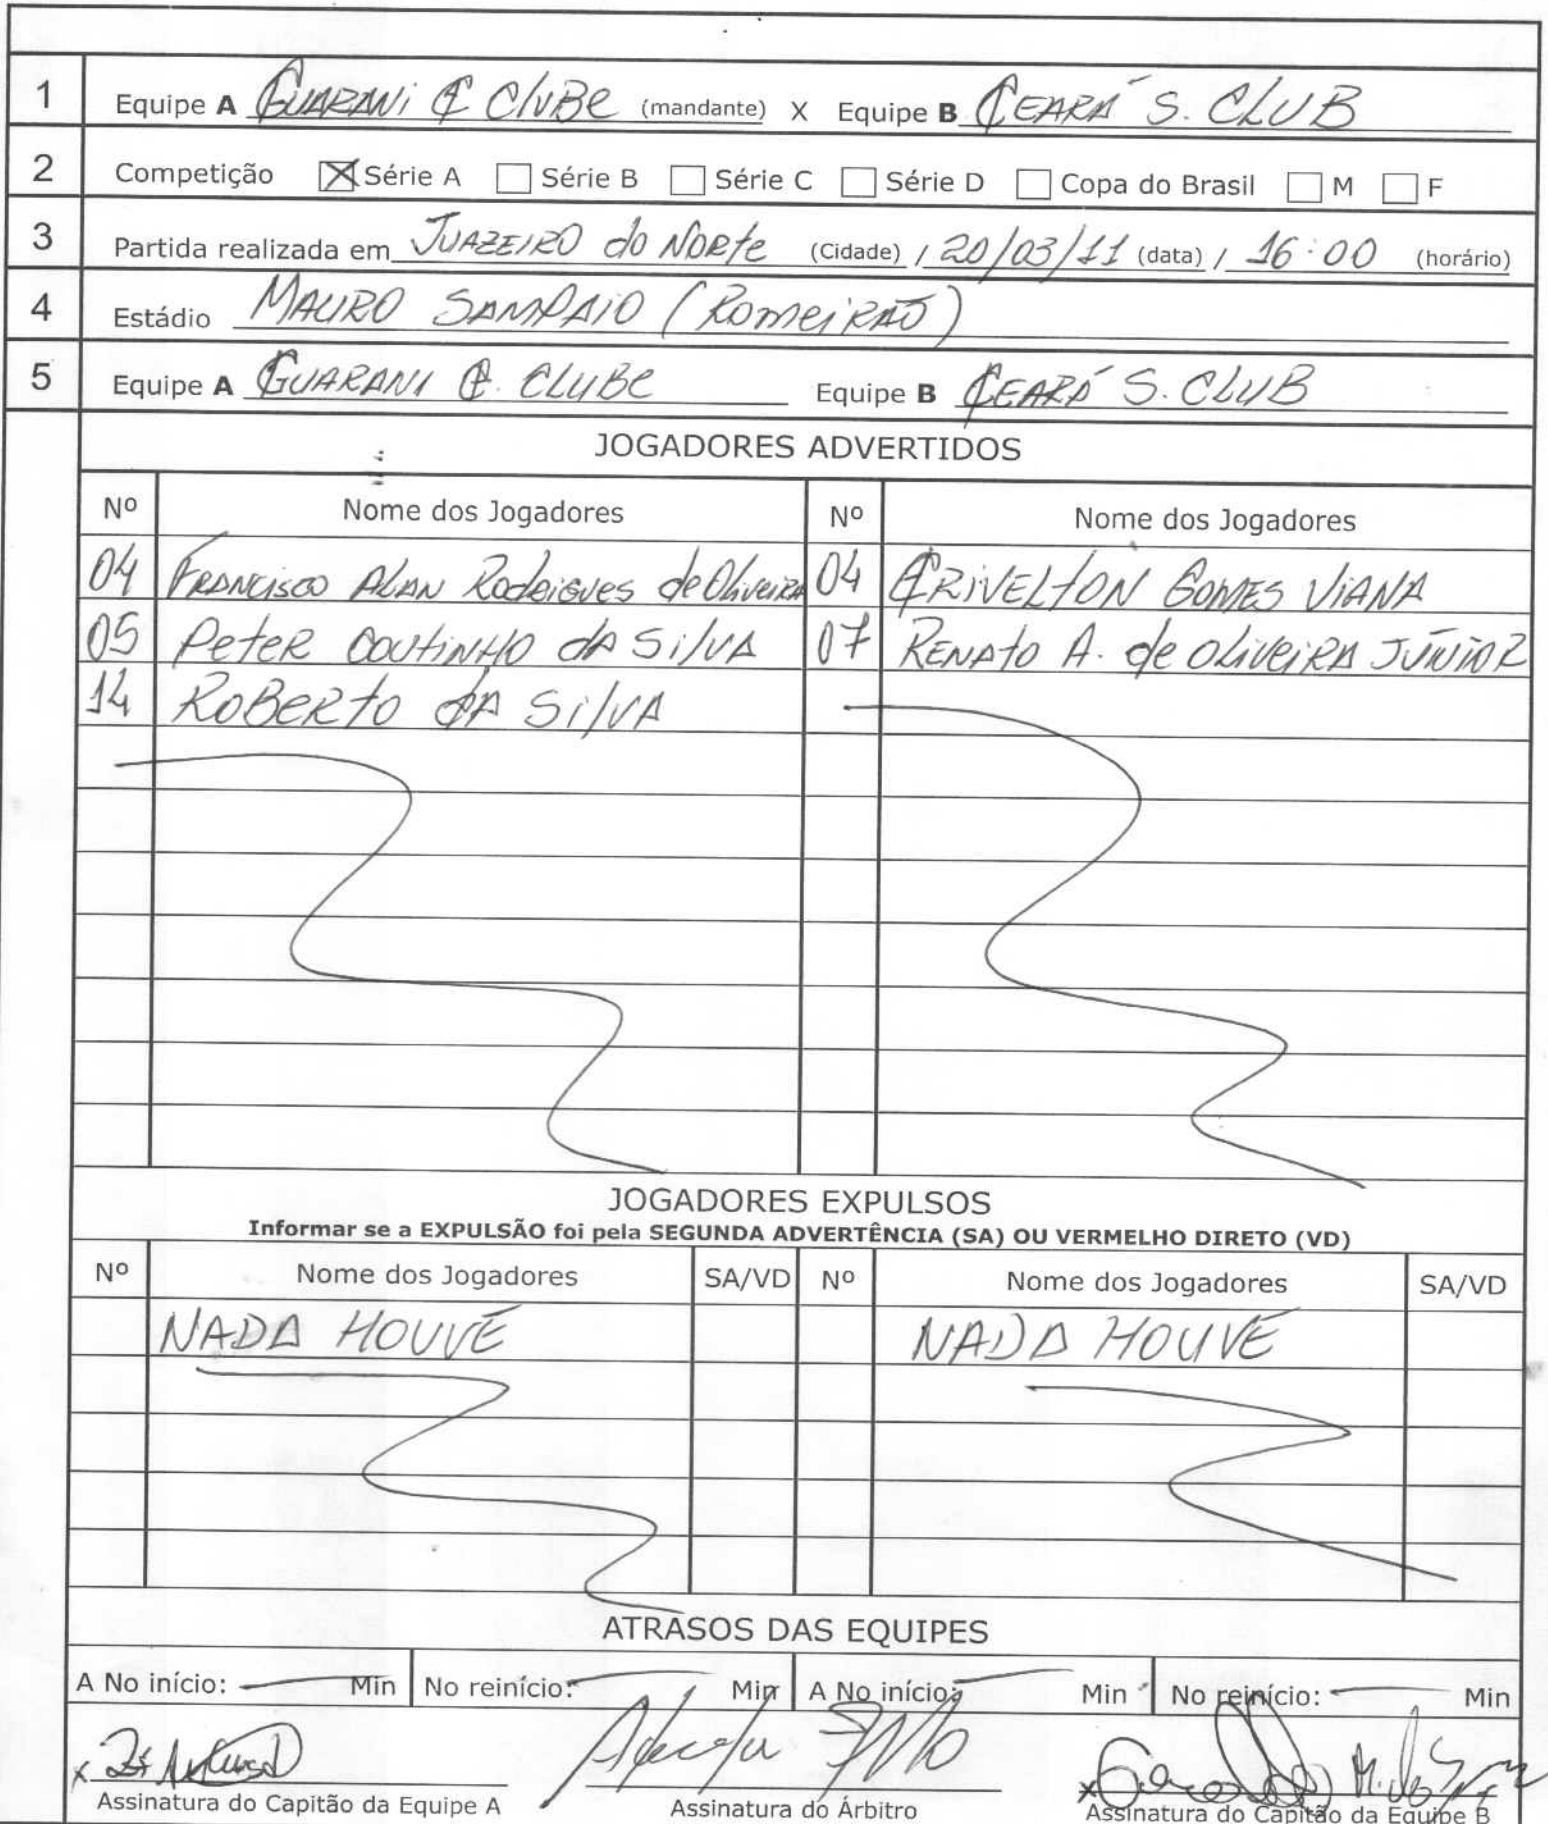 1 Equipe A GUARANI E CLUBE (mandante) X Equipe B CEARÁ S. CLUB
2 Competição ☒ Série A ☐ Série B ☐ Série C ☐ Série D ☐ Copa do Brasil ☐ M ☐ F
3 Partida realizada em JUAZEIRO do NORTE (Cidade) / 20/03/11 (data) / 16:00 (horário)
4 Estádio MAURO SAMPAIO (ROMEIRÃO)
5 Equipe A GUARANI E. CLUBE Equipe B CEARÁ S. CLUB
JOGADORES ADVERTIDOS
Nº Nome dos Jogadores Nº Nome dos Jogadores
04 FRANCISCO ALAN Rodrigues de Oliveira 04 ERIVELTON GOMES VIANA
05 PETER COUTINHO DA SILVA 07 RENATO A. de OLIVEIRA JÚNIOR
14 ROBERTO DA SILVA
JOGADORES EXPULSOS
Informar se a EXPULSÃO foi pela SEGUNDA ADVERTÊNCIA (SA) OU VERMELHO DIRETO (VD)
Nº Nome dos Jogadores SA/VD Nº Nome dos Jogadores SA/VD
NADA HOUVE NADA HOUVE
ATRASOS DAS EQUIPES
A No início: Min No reinício: Min A No início: Min No reinício: Min
Assinatura do Capitão da Equipe A Assinatura do Árbitro Assinatura do Capitão da Equipe B